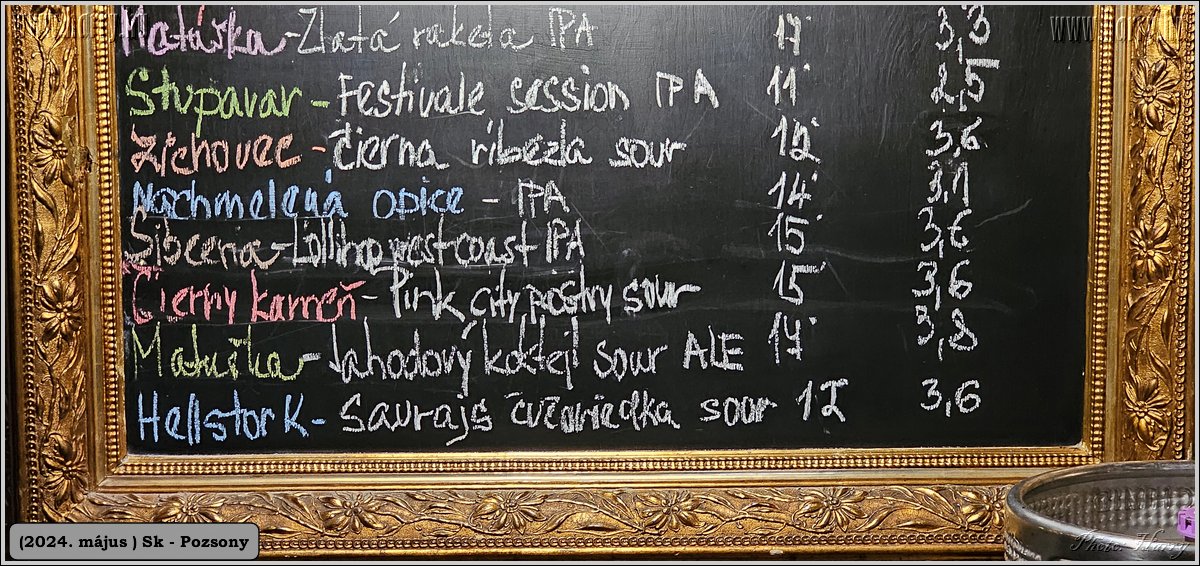 Matúška - Zlatá raketa IPA 17° 3,3
Stupavar - Festivale session IPA 11° 2,5
Zichovec - čierna ríbezla sour 12° 3,6
Nachmelená opice - IPA 14° 3,1
Sibeeria - Lollihop westcoast IPA 15° 3,6
Čierny kameň - Pink city pastry sour 15° 3,6
Matuška - Jahodový koktejl sour ALE 14° 3,8
Hellstork - sour 3,6
(2024. május ) Sk - Pozsony
Photo: Harry